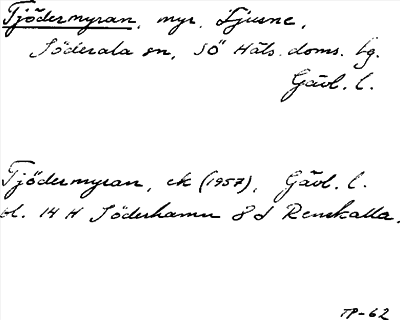 Tjödermyran, myr, Ljusne,
Söderala sn, SÖ Häls. doms. lg.
Gävl. l.
Tjödermyran, ek (1957), Gävl. l.
bl. 14 H Söderhamn 8 d Renskalla.
TP-62